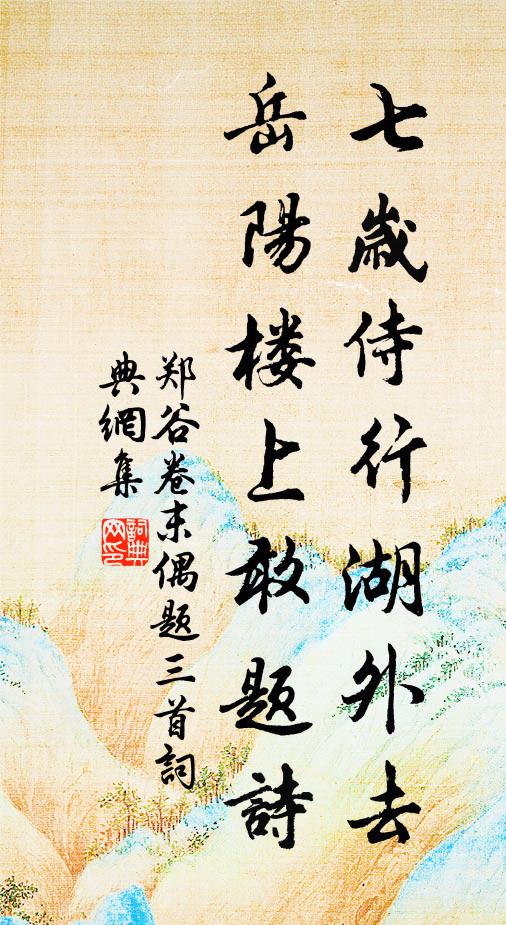 七歲侍行湖外去
岳陽楼上敢題詩
郑谷卷末偶题三首詞
典網集
詞典
网印